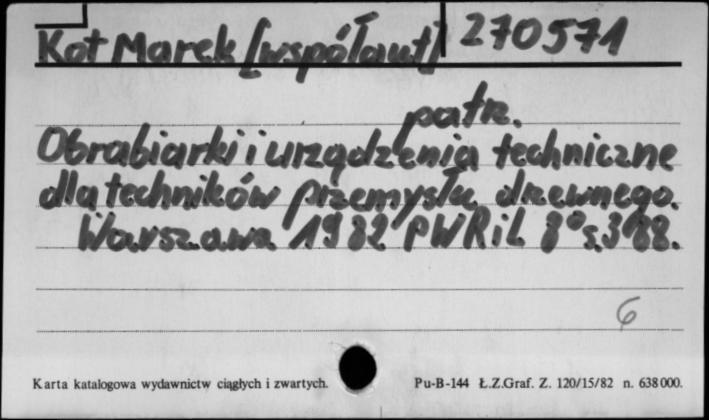 Kot Marek [współaut] 270571
patrz.
Obrabiarki i urządzenia techniczne
dla techników przemysłu drzewnego.
Warszawa 1982 PWRiL 8° s. 388.
6
Karta katalogowa wydawnictw ciągłych i zwartych. Pu-B-144 Ł.Z.Graf. Z. 120/15/82 n. 638 000.